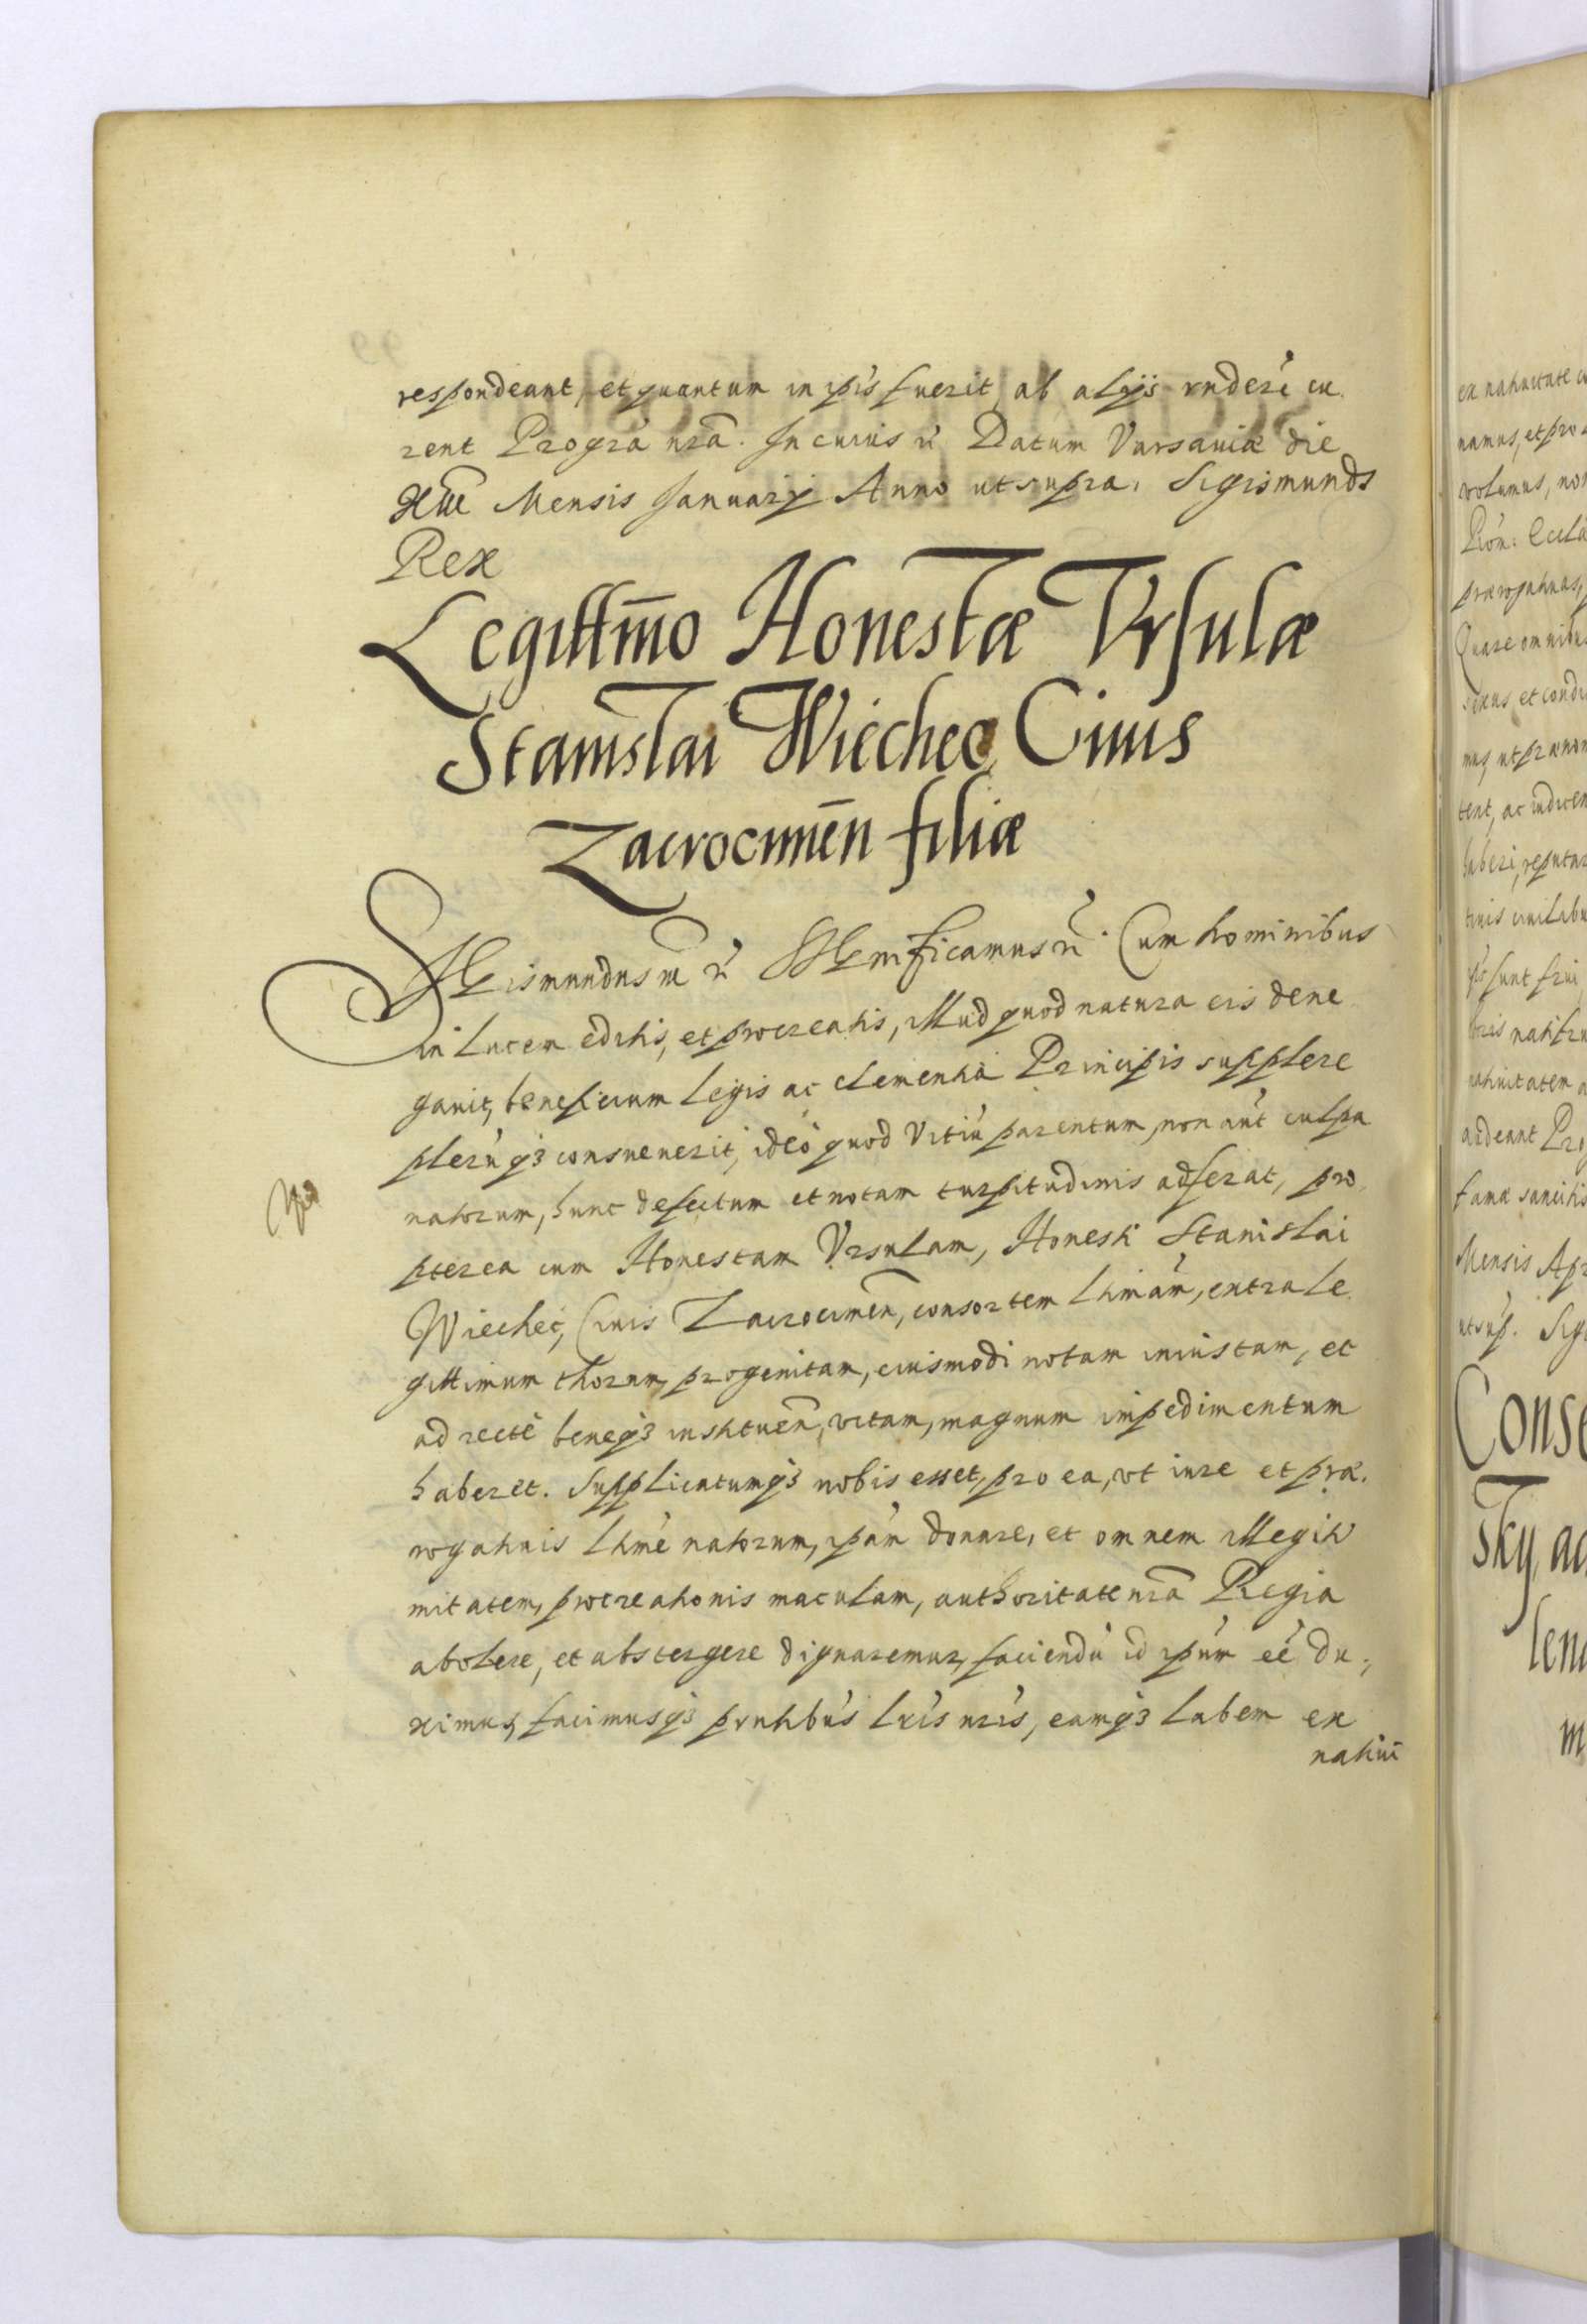 respondeant, et quantum in ipīs fuerit, ab alijs rnderi cu
rent Progrā nrā. In cuius rī Datum Varsaviæ die
Mensis Januarij Anno ut supra. Sigismunds
Rex
Legittm̄o Honestæ Vrsulæ
Stanislai Wiechec Ciuis
Zacrocimēn filiæ
Sigismundus III rī Significamus rī. Cum hominibus
in lucem editis, et procreatis, illud quod natura eis dene
gauit, beneficium legis ac clementia Principis supplere
plerūq3 consueuerit, ideo quod vitiū parentum, non aūt culpa
natorum, hunc defectum et notam turpitudinis adferat, pro
pterea cum Honestam Vrsulam, Honesti Stanislai
Wiechec, Ciuis Zacrocimēn, consortem lhmām, extra le
gittimum thorum progenitam, eiusmodi notam iniustam, et
ad recte beneq3 instituēn, vitam, magnum impedimentum
haberet. Supplicatumq3 nobis esset, pro ea, vt iure et præ
rogatiuis lhmē natorum, ipām donare, et omnem illegitti
mitatem, procreationis maculam, authoritate nrā Regia
abolere, et abstergere dignaremur, faciendū id ipūm eē du,
ximus, facimusq3 prntibūs lrīs nrīs, eamq3 labem ex
natiui
ex natiuitate
namus, et pro
volumus, non
prærogatiuas,
Quare omnibus
sexus et condi
mus, ut prænom
tent, ac iudicen
haberi, reputar
sunt frui
natiuitatem
ardeant Pro
famæ sancitis
Mensis Apr
utsup. Sigi
Conse
Sky, ad
len
m